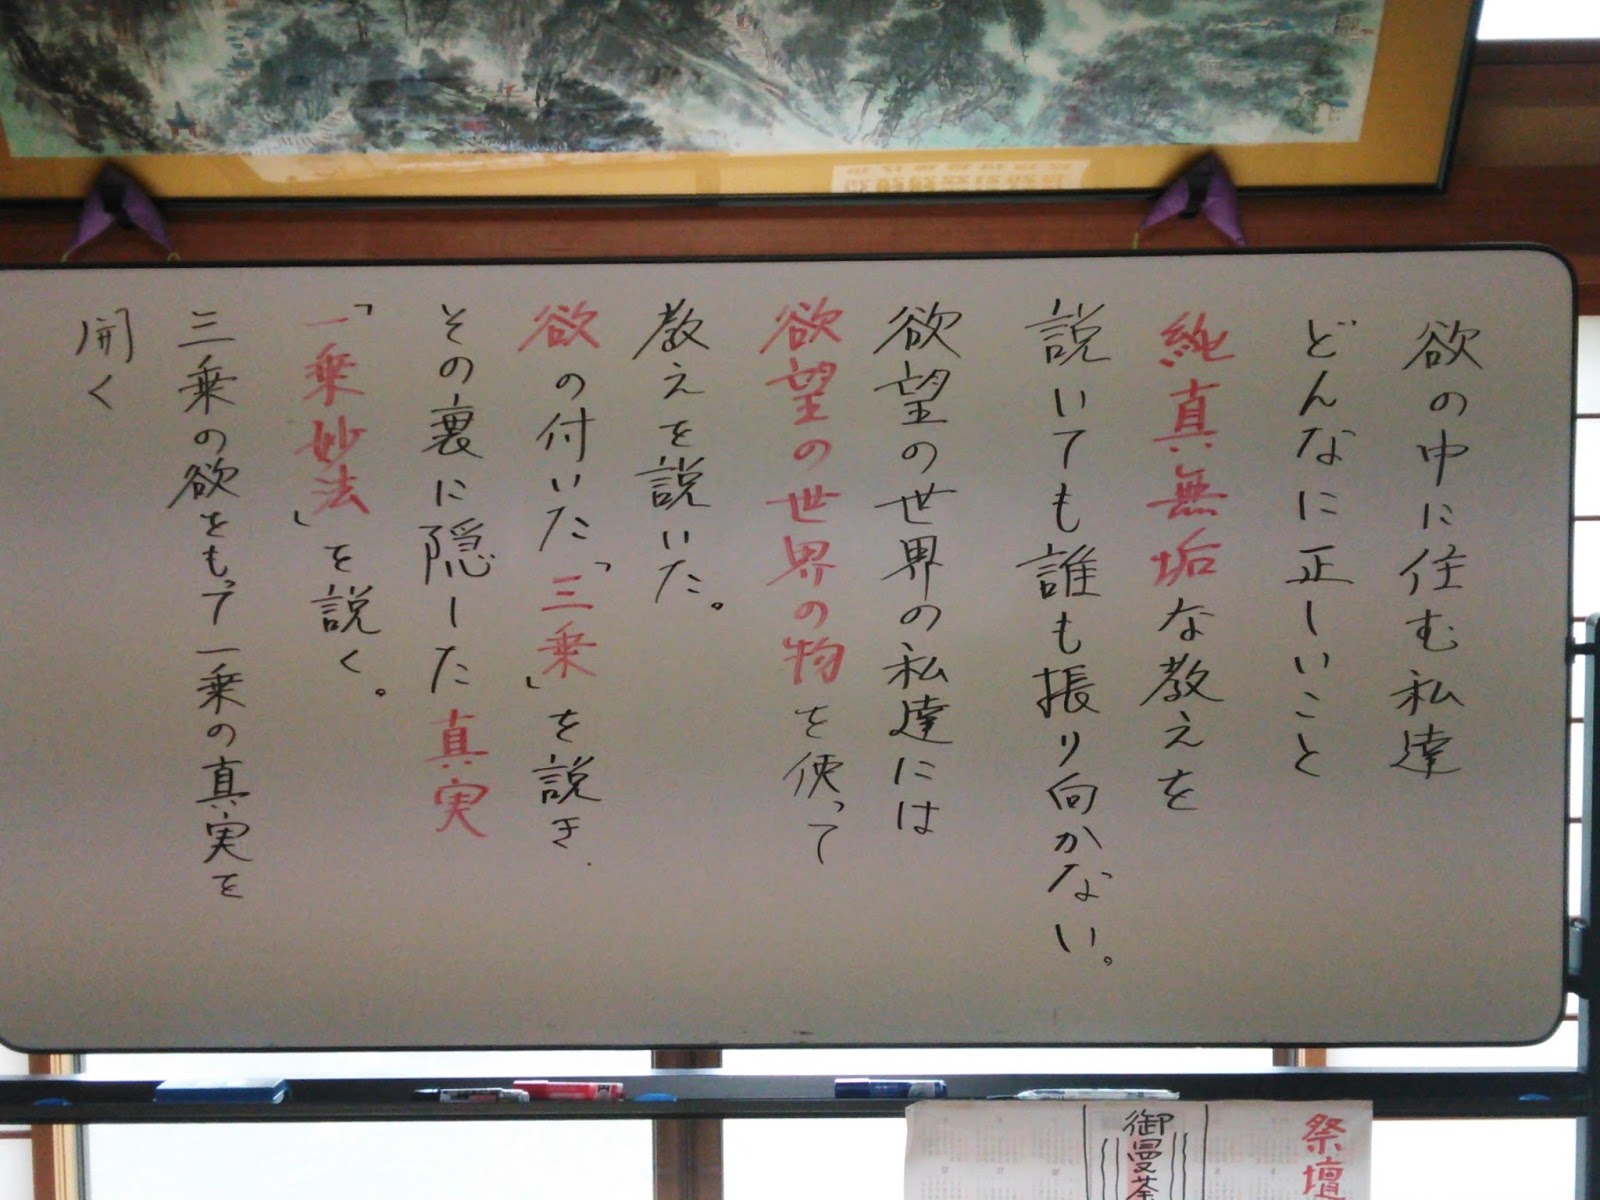 欲の中に住む私達
どんなに正しいこと
純真無垢な教えを
説いても誰も振り向かない。
欲望の世界の私達には
欲望の世界の物を使って
教えを説いた。
欲の付いた「三乗」を説き.
その裏に隠した真実
「一乗妙法」を説く。
三乗の欲をもって一乗の真実を
開く
祭壇
御曼荼